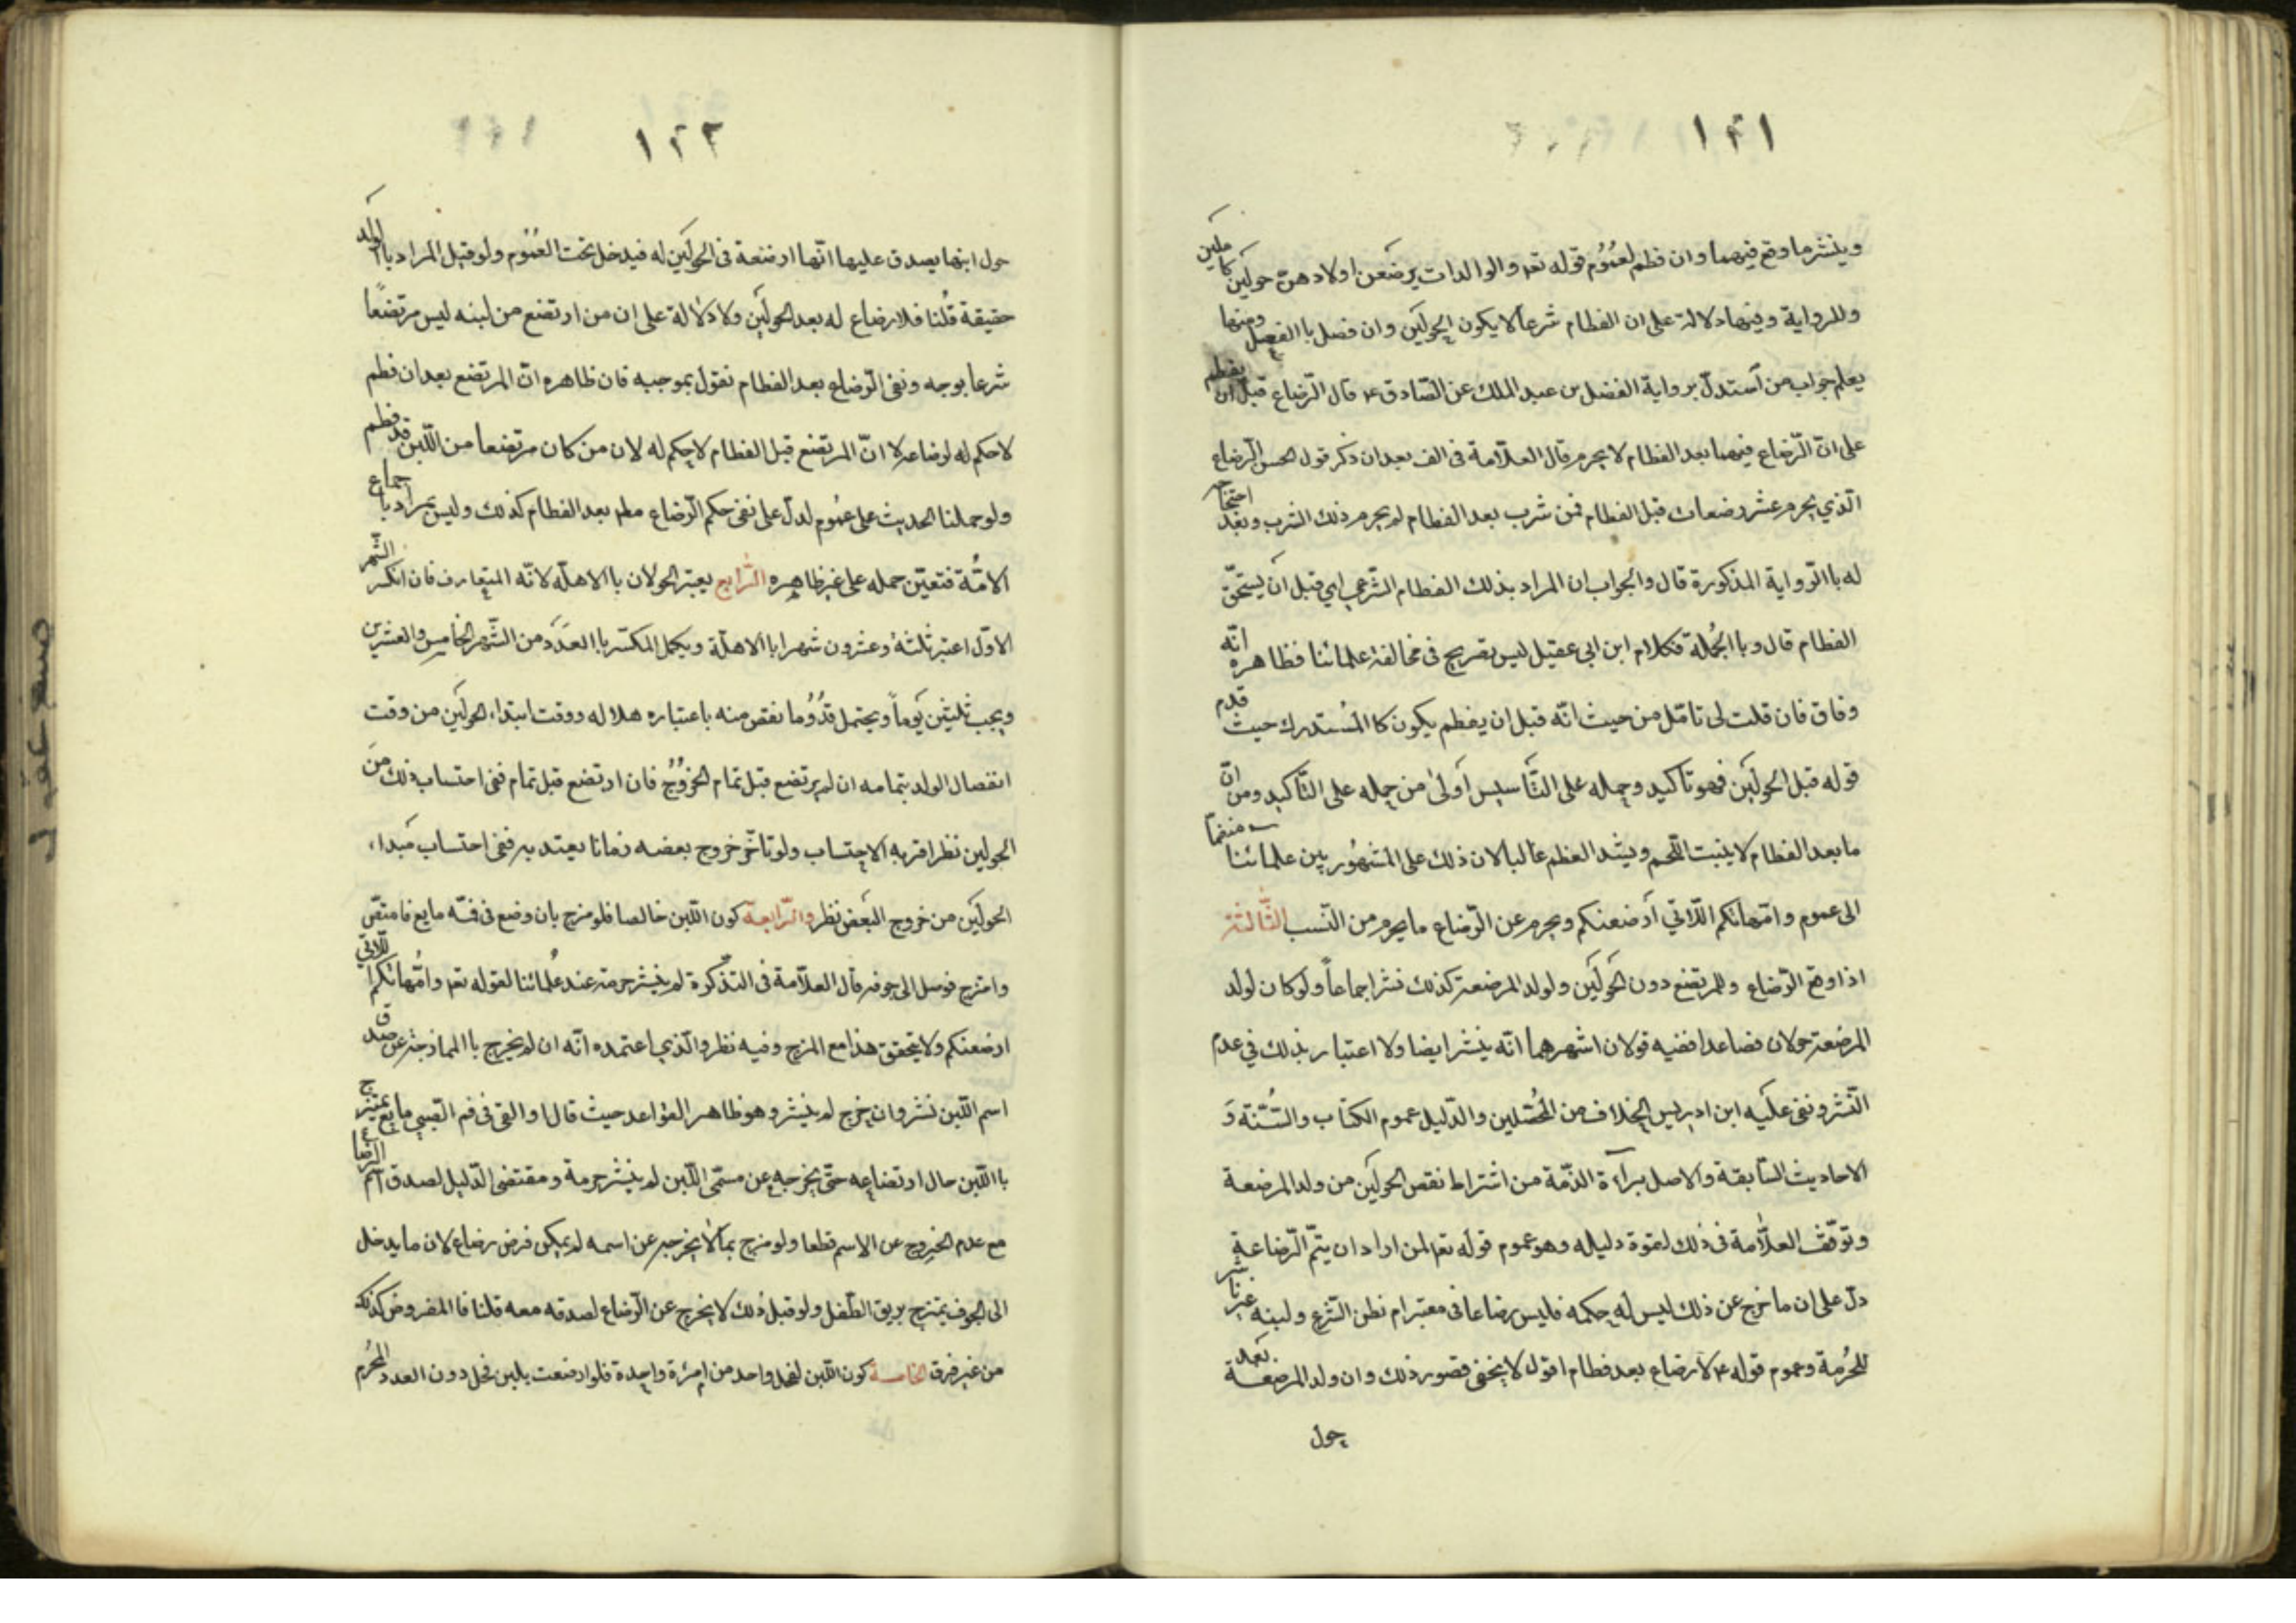 ١٢١
وينشر ما وقع فيهما وان فطم لعموم قوله تعم والوالدات يرضعن اولادهن حولين كاملين
وللرواية وفيها دلالة على ان الفطام شرعا لا يكون الحولين وان فصل باالفصل ومنها
يعلم جواب من استدل برواية الفضل بن عبد الملك عن الصادق ع قال الرضاع قبل ان يفطم
على ان الرضاع فيهما بعد الفطام لا يحرم قال العلامة في الف بعد ان ذكر قول الحسن الرضاع
الذي يحرم عشر رضعات قبل الفطام فمن شرب بعد الفطام لم يحرم ذلك الشرب وبعد احتجاجه
له باالرواية المذكورة قال والجواب ان المراد بذلك الفطام الشرعي اي قبل ان يستحق
الفطام قال وباالجملة فكلام ابن ابي عقيل ليس بصريح في مخالفة علمائنا فظاهره انه
وفاق فان قلت لي تامل من حيث انه قبل ان يفطم يكون كاالمستدرك حيث قدم
قوله قبل الحولين فهو تاكيد وحمله على التاسيس اولى من حمله على التاكيد ومن ان
ما بعد الفطام لا ينبت اللحم ويشد العظم غالبا لان ذلك على المشهور بين علمائنا منضما
الى عموم وامهاتكم اللاتي ارضعنكم ويحرم عن الرضاع ما يحرم من النسب الثالثة
اذا وقع الرضاع وللمرتضع دون الحولين ولولد المرضعة كذلك نشر اجماعا ولو كان لولد
المرضعة حولان فصاعدا ففيه قولان اشهرهما انه ينشر ايضا ولا اعتبار بذلك في عدم
النشر ونفى عليه ابن ادريس الخلاف من المحصلين والدليل عموم الكتاب والسنة و
الاحاديث السابقة والاصل برآءة الذمة من اشتراط نقص الحولين من ولد المرضعة
وتوقف العلامة في ذلك لقوة دليله وهو عموم قوله تعم لمن اراد ان يتم الرضاعة
دل على ان ما خرج عن ذلك ليس له حكمه فليس رضاعا في معتبر نظر الشرع ولبنه غير ناشر
للحرمة وعموم قوله ع لا رضاع بعد فطام اقول لا يخفى قصور ذلك وان ولد المرضعة بعد
حول
١٢٢
حول ابنها يصدق عليها انها ارضعة في الحولين له فيدخل تحت العموم ولو قيل المراد باالولد
حقيقة قلنا فلا رضاع له بعد الحولين ولا دلالة على ان من ارتضع من لبنه ليس مرتضعا
شرعا بوجه ونفي الرضاع بعد الفطام نقول بموجبه فان ظاهره ان المرتضع بعد ان فطم
لا حكم له لرضاعه لا ان المرتضع قبل الفطام لا حكم له لان من كان مرتضعا من اللبن قد فطم
ولو حملنا الحديث على عموم لدل على نفي حكم الرضاع مطم بعد الفطام كذلك وليس بمراد باجماع
الامة فتعين حمله على غير ظاهره الرابع يعتبر الحولان باالاهلة لانه المتعارف فان انكسر الشهر
الاول اعتبر ثلثة وعشرون شهرا باالاهلة ويكمل المكسر باالعدد من الشهر الخامس والعشرين
ويجب ثلثين يوما ويحتمل قدر ما نقص منه باعتباره هلاله ووقت ابتداء الحولين من وقت
انفصال الولد بتمامه ان لم يرتضع قبل تمام الخروج فان ارتضع قبل تمام ففي احتساب ذلك من
الحولين نظر اقربه الاحتساب ولو تاخر خروج بعضه زمانا يعتد به ففي احتساب مبداء
الحولين من خروج البعض نظر والرابعة كون اللبن خالصا فلو مزج بان وضع في فمه مايع فامتص
وامتزج فوصل الى جوفه قال العلامة في التذكرة لم ينشر حرمة عند علمائنا لقوله تعم وامهاتكم اللاتي
ارضعنكم ولا يتحقق هذا مع المزج وفيه نظر والذي اعتمده انه ان لم يخرج باالممازجة عن صدق
اسم اللبن نشر وان خرج لم ينشر وهو ظاهر القواعد حيث قال او القي في فم الصبي مايع يمتزج
باللبن حال ارتضاعه حتى يخرجه عن مسمى اللبن لم ينشر حرمة ومقتضى الدليل لصدق اسم الرضاع
مع عدم الخروج عن الاسم قطعا ولو مزج بما لا يخرجه عن اسمه لم يمكن فرض رضاع لان ما يدخل
الى الجوف يمتزج بريق الطفل ولو قيل ذلك لا يخرج عن الرضاع لصدقه معه قلنا فاالمفروض كذلك
من غير فرق الخامسة كون اللبن لفحل واحد من امرئة واحدة فلو ارضعت بلبن فحل دون العدد المحرم